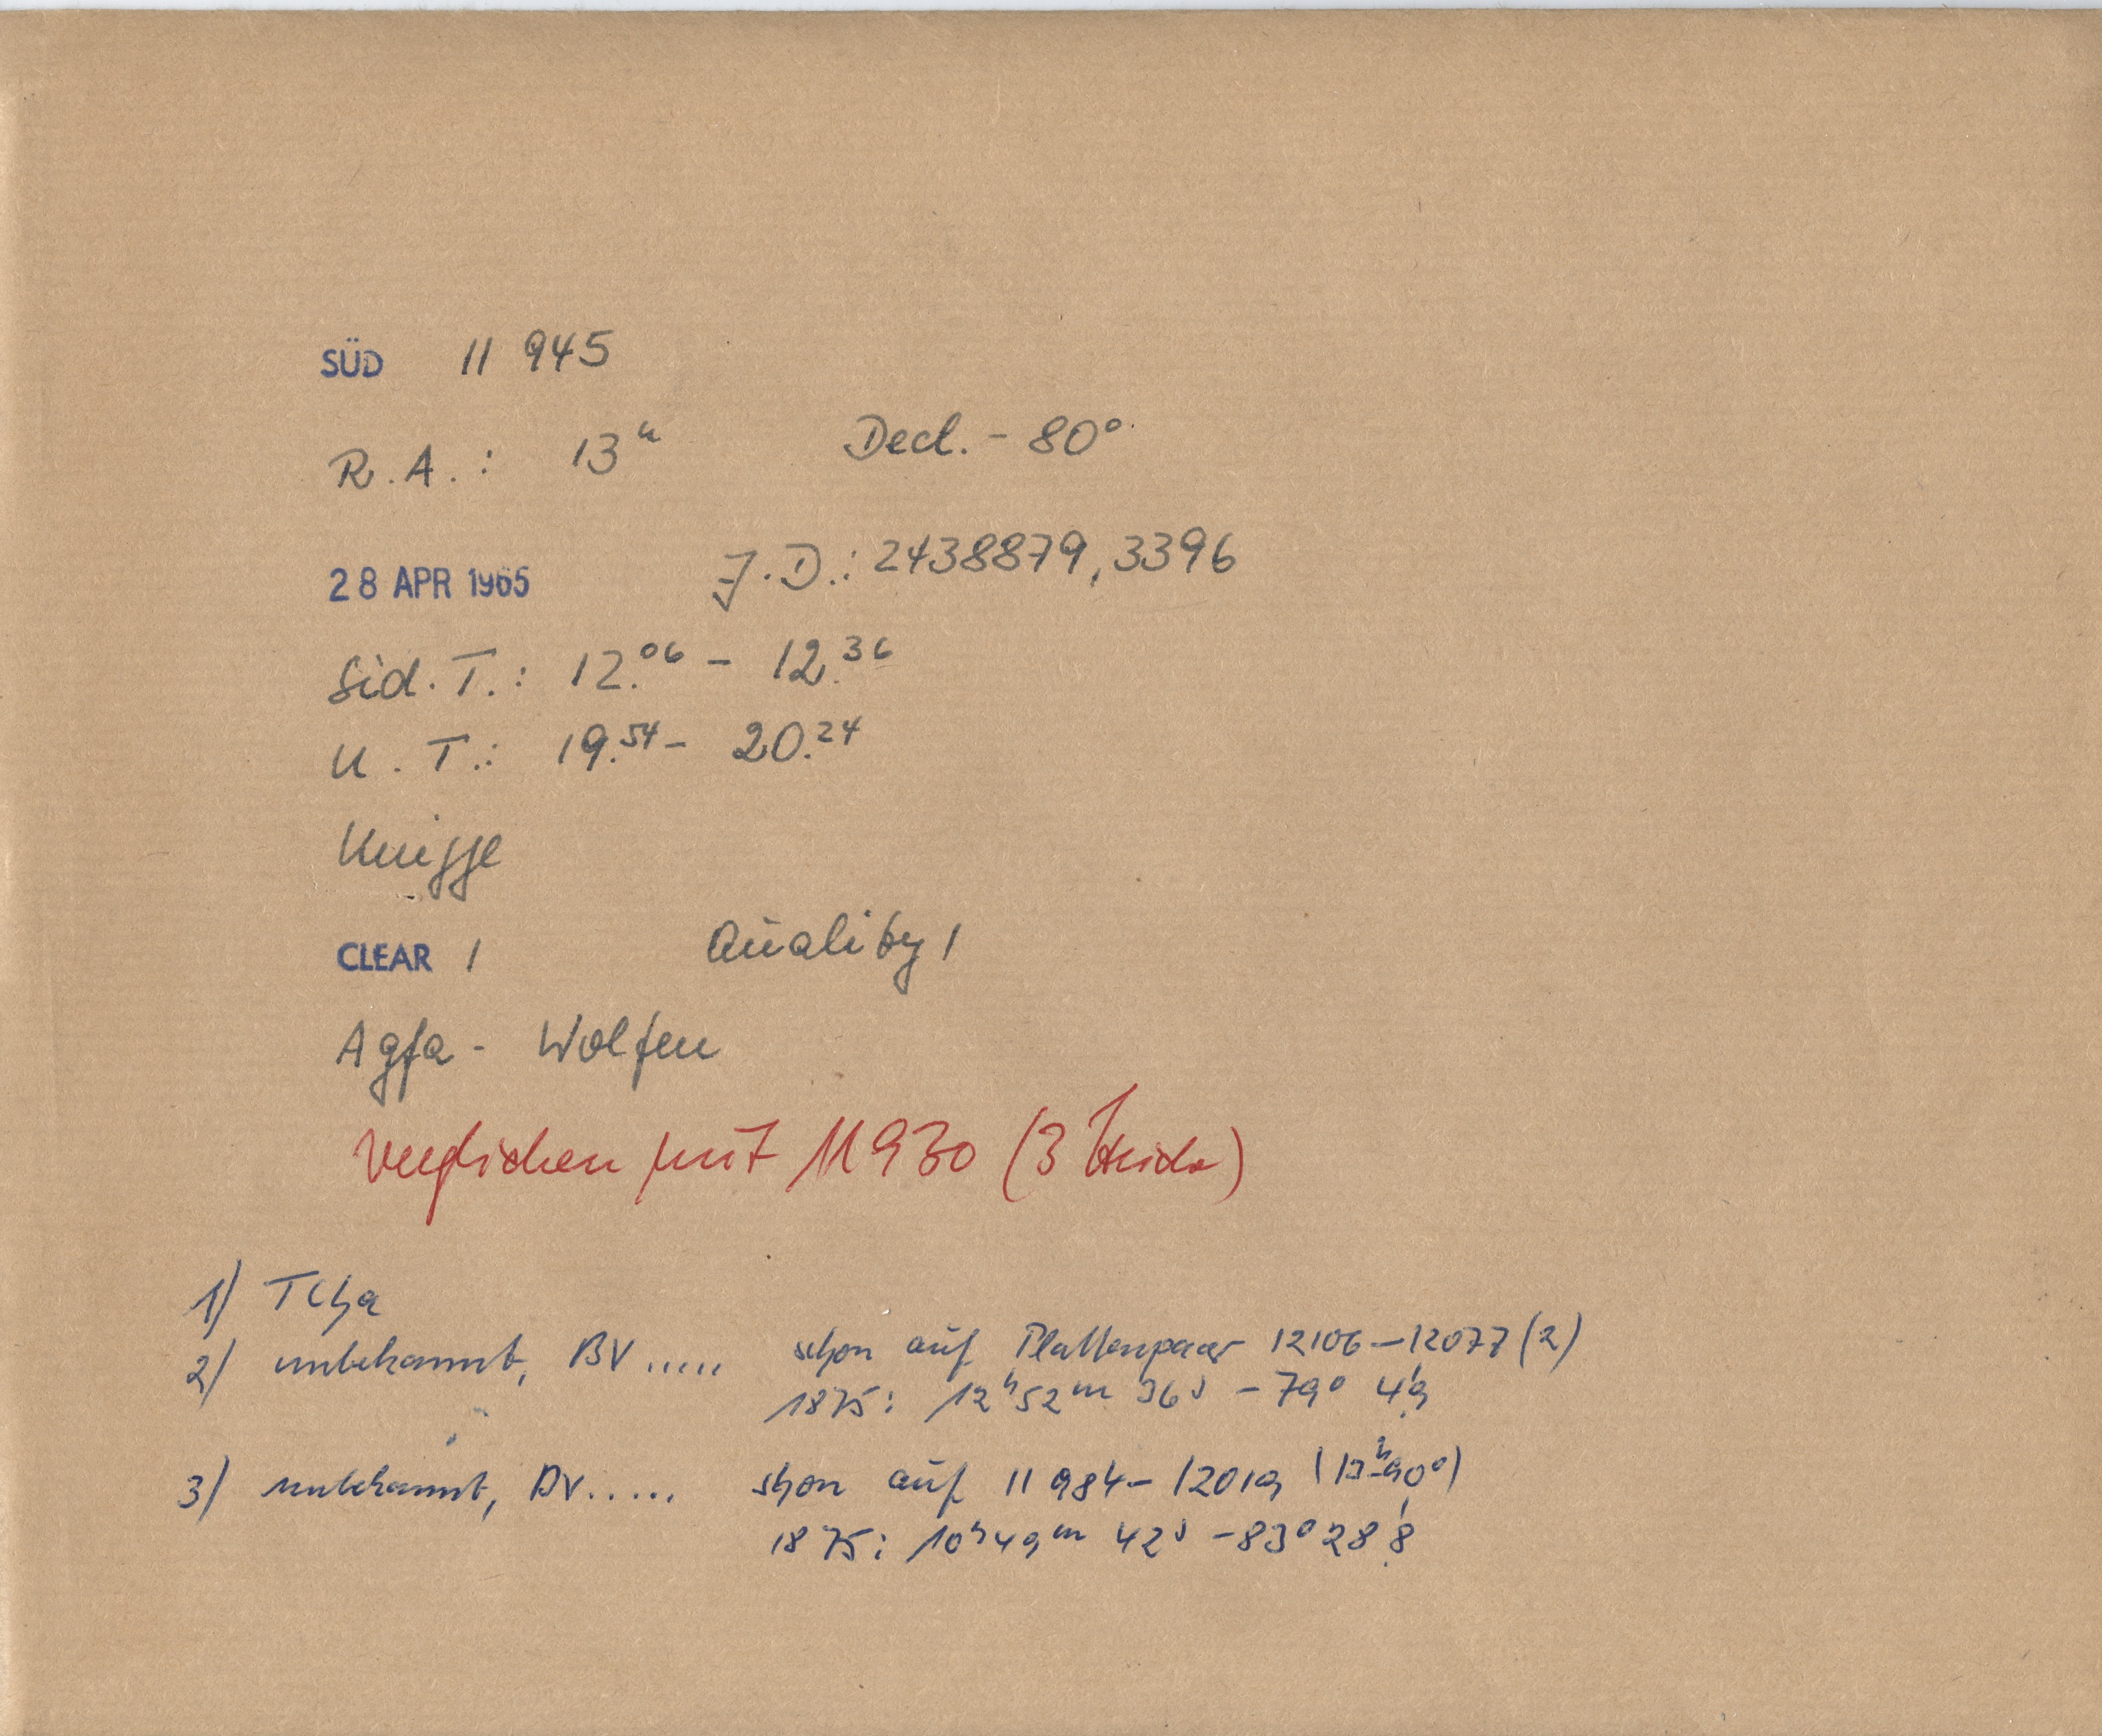 SÜD 11 945
R.A.: 13ʰ Decl. - 80°
28 APR 1965 J.D.: 2438879,3396
Sid. T.: 12.⁰⁶ - 12.³⁶
U. T.: 19.⁵⁴ - 20.²⁴
Knigge
CLEAR 1 Quality 1
Agfa - Wolfen
verglichen mit 11930 (3
1) T Cha
2) unbekannt, BV ..... schon auf Plattenpaar 12106 - 12077 (2)
1875: 12ʰ 52ᵐ 36ˢ - 79° 4'.9
3) unbekannt, BV ..... schon auf 11 984 - 12019 (13ʰ -90°)
1875: 10ʰ 49ᵐ 42ˢ - 83° 28'.8